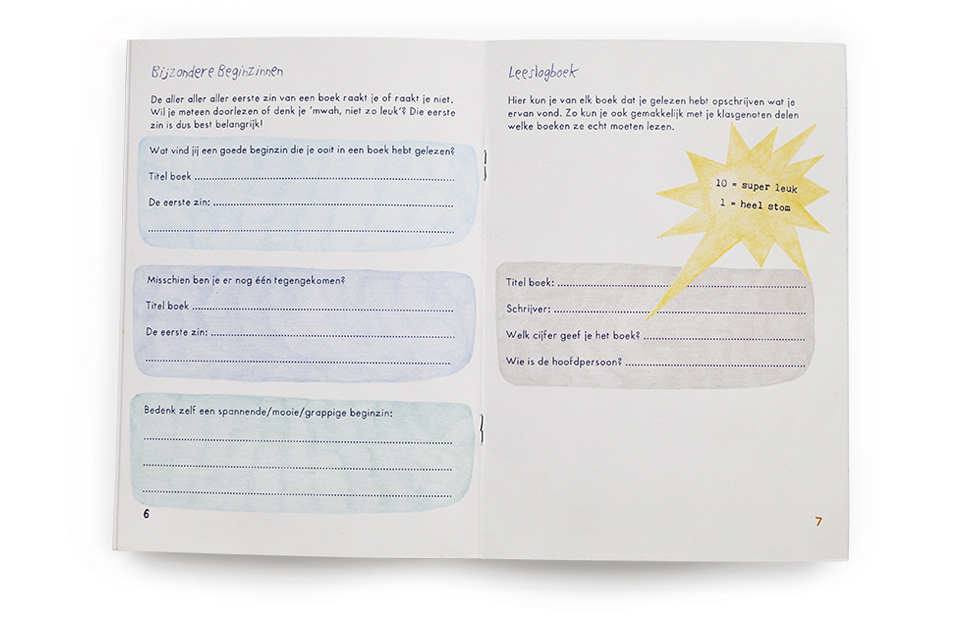 Bijzondere Beginzinnen
De aller aller aller eerste zin van een boek raakt je of raakt je niet.
Wil je meteen doorlezen of denk je 'mwah, niet zo leuk'? Die eerste
zin is dus best belangrijk!
Wat vind jij een goede beginzin die je ooit in een boek hebt gelezen?
Titel boek
De eerste zin:
Misschien ben je er nog één tegengekomen?
Titel boek
De eerste zin:
Bedenk zelf een spannende/mooie/grappige beginzin:
6
Leeslogboek
Hier kun je van elk boek dat je gelezen hebt opschrijven wat je
ervan vond. Zo kun je ook gemakkelijk met je klasgenoten delen
welke boeken ze echt moeten lezen.
10 = super leuk
1 = heel stom
Titel boek:
Schrijver:
Welk cijfer geef je het boek?
Wie is de hoofdpersoon?
7